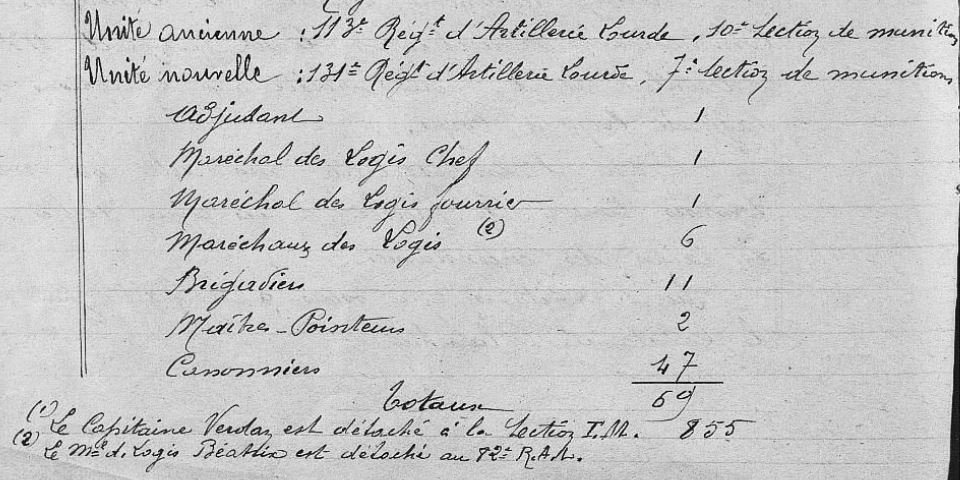 Unité ancienne : 113e Régt d'Artillerie Lourde, 10e Section de munitions
Unité nouvelle : 131e Régt d'Artillerie Lourde, 7e Section de munitions
Adjudant 1
Maréchal des Logis Chef 1
Maréchal des Logis fourrier 1
Maréchaux des Logis (2) 6
Brigadiers 11
Maîtres-Pointeurs 2
Canonniers 47
Totaux 69
(1) Le Capitaine Verdaz est détaché à la Section I.M. 855
(2) Le Mal d. Logis est détaché au 82e R.A.L.